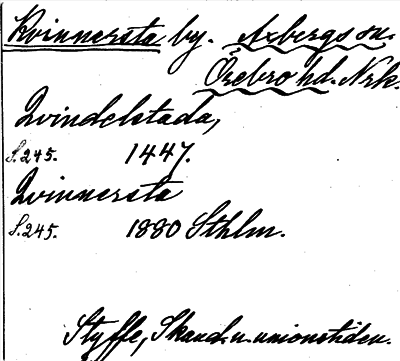 Kvinnersta by. Axbergs sn.
Örebro hd. Nrk.
Qvindelstada,
S.245. 1447.
Qvinnersta
S.245. 1880 Sthlm.
Styffe, Skand. u. unionstiden.